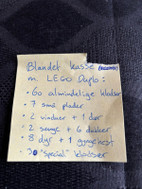 Blandet kasse
m. LEGO Duplo:
• 60 almindelige klodser
• 7 små plader
• 2 vinduer + 1 dør
• 2 senge + 6 dukker
• 8 dyr + 1 gyngehest
• 20 "special" klodser